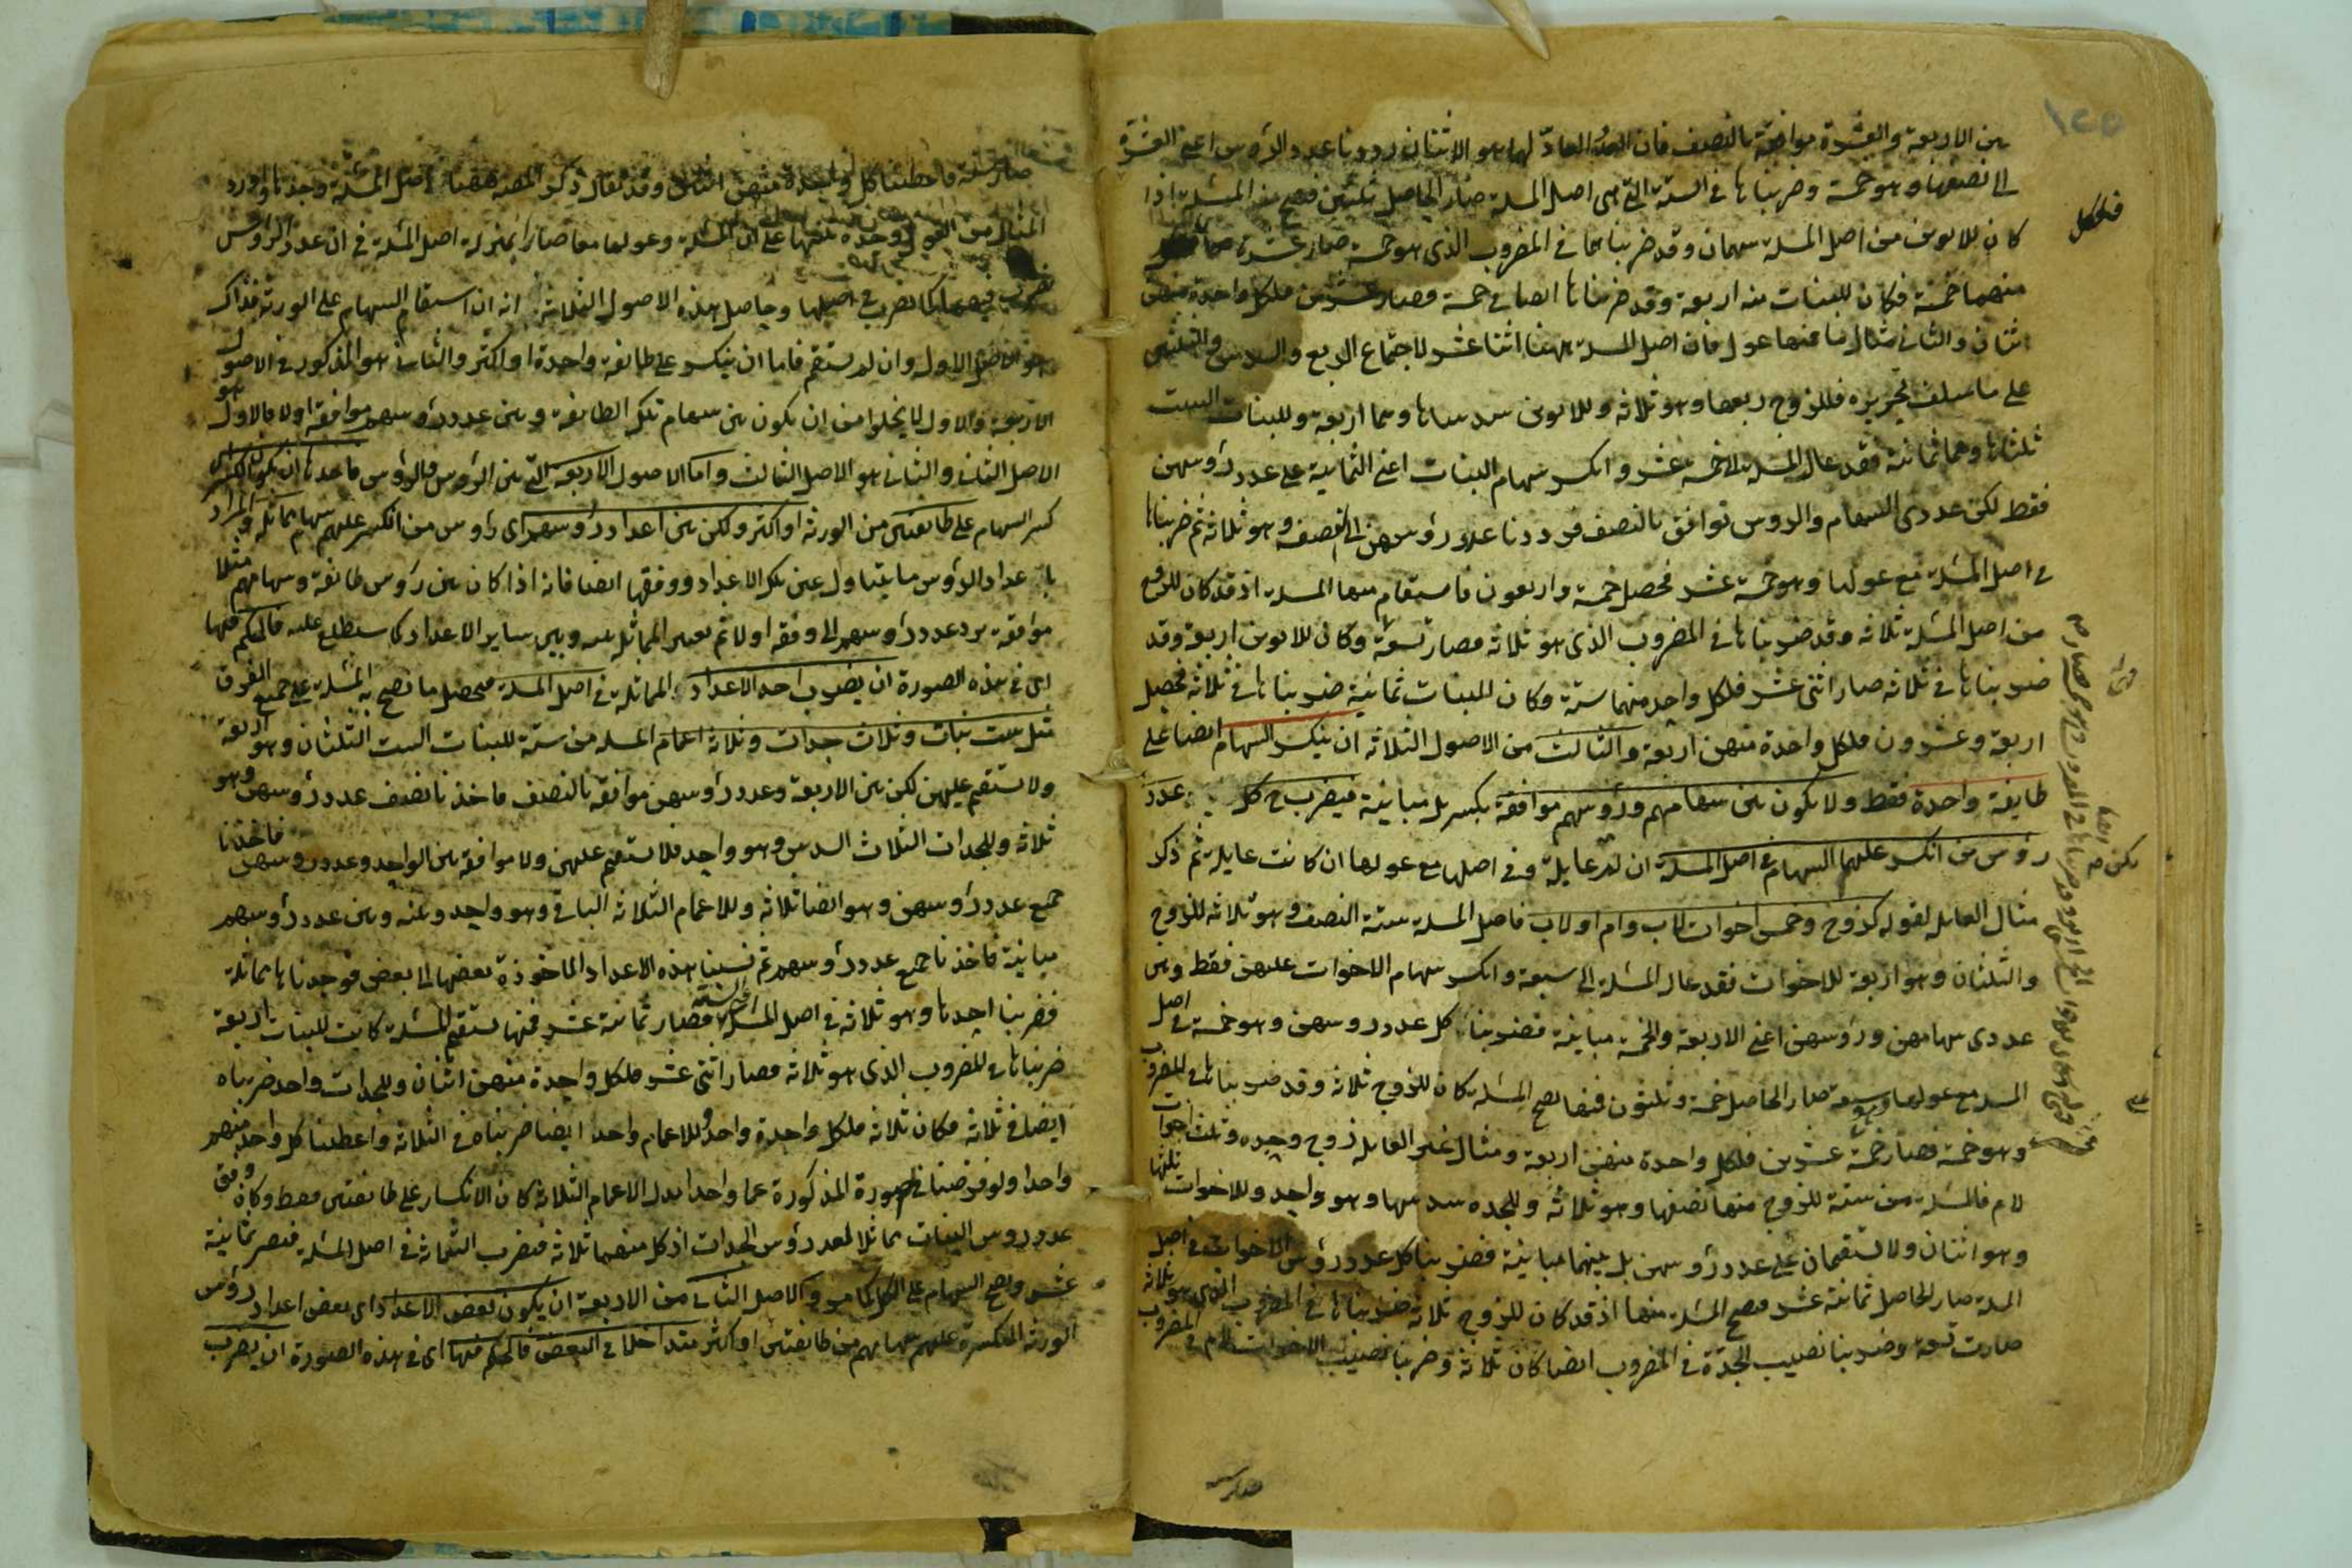 بين الاربعة والعشرة موافقة بالنصف فان العدد العاد لهما هو الاثنان رددنا عدد الرؤس اعنى العشرة
الى نصفها وهو خمسة وضربناها فى الستة التى هى اصل المسئلة صار الحاصل ثلثين فتصح منه المسئلة اذا
كان للابوين من اصل المسئلة سهمان وقد ضربناهما فى المضروب الذى هو خمسة صار عشرة
منهما خمسة فكان للبنات منه اربعة وقد ضربناها ايضا فى خمسة فصار عشرين فلكل واحدة منهن
اثنان والثانى مثال ما فيها عول فان اصل المسئلة ههنا اثنا عشر لاجتماع الربع والسدس والثلثين
على ما سلف تحريره فللزوج ربعها وهو ثلاثة وللابوين سدساها وهما اربعة وللبنات الست
ثلثاها وهما ثمانية فقد عال المسئلة الى خمسة عشر وانكسر سهام البنات اعنى الثمانية على عدد رؤسهن
فقط لكن عددى السهام والروس توافق بالنصف فرددنا عدد رؤسهن الى النصف وهو ثلاثة ثم ضربناها
فى اصل المسئلة مع عولها وهو خمسة عشر فحصل خمسة واربعون فاستقام منها المسئلة اذ قد كان للزوج
من اصل المسئلة ثلاثة وقد ضربناها فى المضروب الذى هو ثلاثة فصار تسعة وكان للابوين اربعة وقد
ضربناها فى ثلاثة صار اثنى عشر فلكل واحد منهما ستة وكان للبنات ثمانية ضربناها فى ثلاثة فحصل
اربعة وعشرون فلكل واحدة منهن اربعة والثالث من الاصول الثلاثة ان ينكسر السهام ايضا على
طايفة واحدة فقط ولا يكون بين سهامهم ورؤسهم موافقة بكسر بل مباينة فيضرب ح كل عدد
رؤس من انكسر عليهم السهام فى اصل المسئلة ان لم عايلة وفى اصلها مع عولها ان كانت عايلة ثم ذكر
مثال العايلة لقوله كزوج وخمس اخوات لاب وام او لاب فاصل المسئلة ستة النصف وهو ثلاثة للزوج
والثلثان وهو اربعة للاخوات فقد عال المسئلة الى سبعة وانكسر سهام الاخوات عليهن فقط وبين
عددى سهامهن ورؤسهن اعنى الاربعة والخمسة مباينة فضربنا كل عدد روسهن وهو خمسة فى اصل
المسئلة مع عولها وهو سبعة صار الحاصل خمسة وثلثون فمنها تصح المسئلة كان للزوج ثلاثة وقد ضربناها فى المضروب
وهو خمسة فصار خمسة عشر فلكل واحدة منهن اربعة ومثال غير العايلة زوج وجده وثلث اخوات
لام فالمسئلة من ستة للزوج منها نصفها وهو ثلاثة وللجدة سدسها وهو واحد وللاخوات ثلثها
وهو اثنان ولا تستقيمان على عدد رؤسهن بل بينهما مباينة فضربنا كل عدد رؤس الاخوات فى اصل
المسئلة صار الحاصل ثمانية عشر فتصح المسئلة منها اذ قد كان للزوج ثلاثة ضربناها فى المضروب الذى هو ثلاثة
صارت تسعة وضربنا نصيب الجدة فى المضروب ايضا كان ثلاثة وضربنا نصيب الاخوات لام فى المضروب
صار ستة فاعطينا كل واحدة منهن اثنان وقد يقال ذكر المصنف ههنا فى اصل المسئلة وحدها واورد
المثال من العول وحده تنبيها على ان المسئلة وعولها معا صارا بمنزلة اصل المسئلة فى ان عدد الرؤس
يضرب فيهما كما تضرب فى اصلها وحاصل هذه الاصول الثلاثة انه ان استقام السهام على الورثة فذاك
هو الاصل الاول وان لم يستقم فاما ان ينكسر على طائفة واحدة او اكثر والثانى هو المذكور فى الاصول
الاربعة والاول لا يخلوا من ان يكون بين سهام تلك الطايفة وبين عدد رؤسهم موافقة او لا فالاول هو
الاصل الثانى والثانى هو الاصل الثالث واما الاصول الاربعة التى بين الرؤس والرؤس فاحدها ان يكون
كسر السهام على طايفتين من الورثة او اكثر ولكن بين اعداد رؤسهم اى رؤس من انكسر عليهم سهام مماثلة والمراد
باعداد الرؤس ما يتناول عين تلك الاعداد ووفقها ايضا فانه اذا كان بين رؤس طايفة وسهامهم مثلا
موافقة يرد عدد رؤسهم الى وفقه اولا ثم يعتبر المماثلة بينه وبين ساير الاعداد كما ستطلع عليه فالحكم فيها
اى فى هذه الصورة ان يضرب احد الاعداد المماثلة فى اصل المسئلة فيحصل ما تصح به المسئلة على جميع الفرق
مثل ست بنات وثلاث جدات وثلاثة اعمام المسئلة من ستة للبنات الست الثلثان وهو اربعة
ولا تستقيم عليهن لكن بين الاربعة وعدد رؤسهن موافقة بالنصف فاخذنا نصف عدد رؤسهن وهو
ثلاثة وللجدات الثلاث السدس وهو واحد فلا تستقيم عليهن ولا موافقة بين الواحد وعدد روسهن فاخذنا
جميع عدد رؤسهن وهو ايضا ثلاثة وللاعمام الثلاثة الباقى وهو واحد وبينه وبين عدد رؤسهم
مباينة فاخذنا جميع عدد رؤسهم ثم نسبنا هذه الاعداد الماخوذة بعضها الى بعض فوجدناها مماثلة
فضربنا احدها وهو ثلاثة فى اصل المسئلة اعنى الستة فصار ثمانية عشر فمنها تستقيم المسئلة كانت للبنات اربعة
ضربناها فى المضروب الذى هو ثلاثة فصار اثنى عشر فلكل واحدة منهن اثنان وللجدات واحد ضربناه
ايضا فى ثلاثة فكان ثلاثة فلكل واحدة واحد وللاعمام واحدا ايضا ضربناه فى الثلاثة واعطينا كل واحد منهم
واحدا ولو فرضنا فى صورة المذكورة عما واحدا بدل الاعمام الثلاثة كان الانكسار على طايفتين فقط وكان وفق
عدد روس البنات مماثلا لعدد رؤس الجدات اذ كل منهما ثلاثة فيضرب الثلاثة فى اصل المسئلة فتصير ثمانية
عشر وتصح السهام على الكل كما مر والاصل الثانى من الاربعة ان يكون بعض الاعداد اى بعض اعداد رؤس
الورثة المنكسرة عليهم سهامهم من طايفتين او اكثر متداخلا فى البعض فالحكم فيها اى فى هذه الصورة ان يضرب